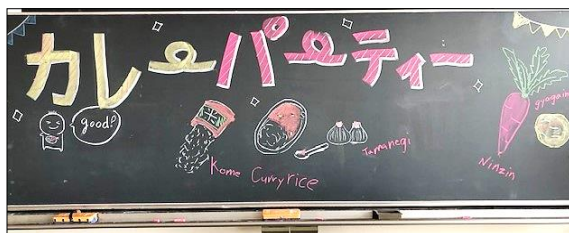 カレーパーティー
good!
米
Kome
Curry rice
Tamanegi
Ninzin
gyagaim